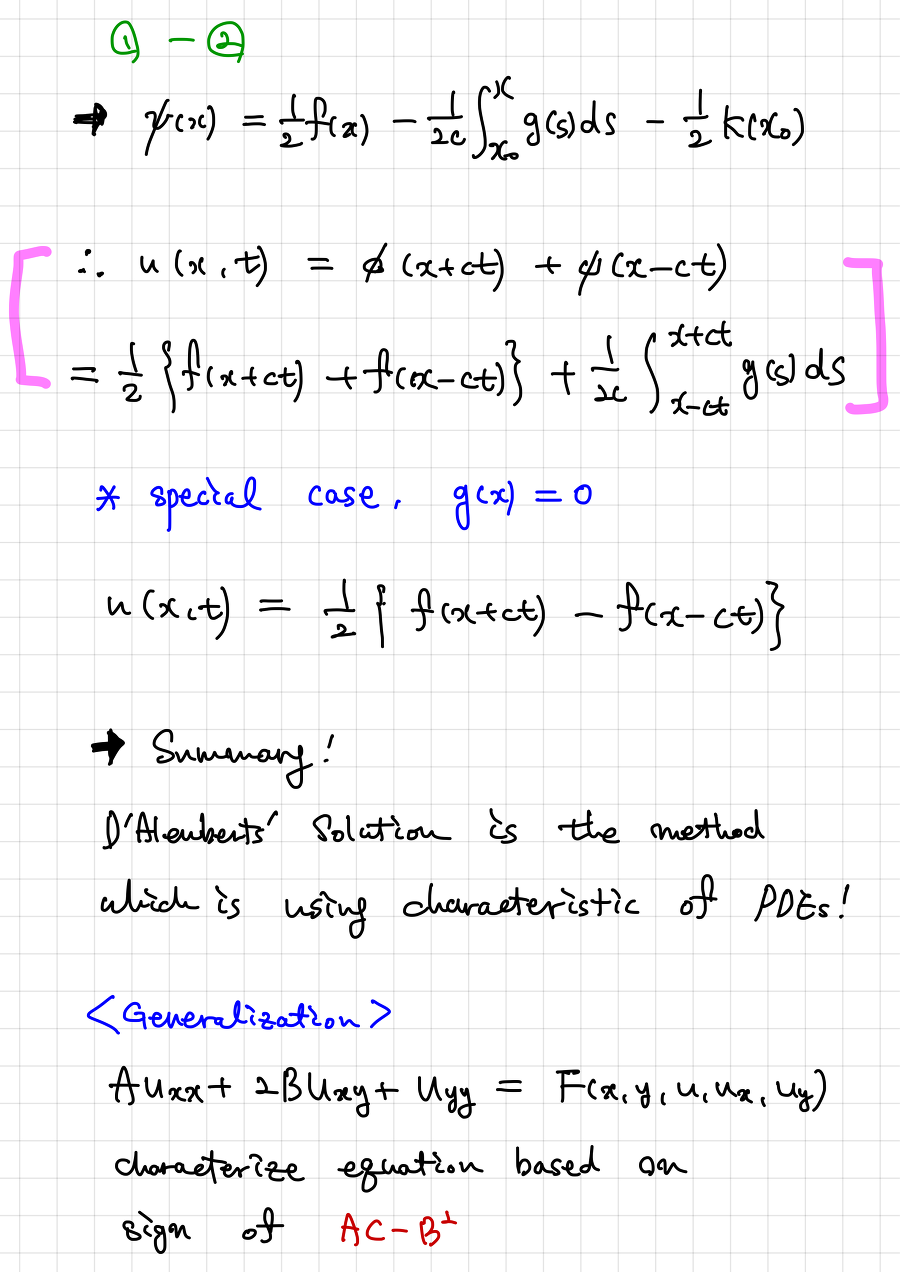 ① - ②
→ ψ(x) = 1/2 f(x) - 1/2c ∫_{x₀}^{x} g(s)ds - 1/2 k(x₀)
∴ u(x,t) = φ(x+ct) + ψ(x-ct)
= 1/2 {f(x+ct) + f(x-ct)} + 1/2c ∫_{x-ct}^{x+ct} g(s)ds
* special case, g(x) = 0
u(x,t) = 1/2 { f(x+ct) - f(x-ct)}
→ Summary!
D'Alemberts' Solution is the method
which is using characteristic of PDEs!
<Generalization>
Auxx + 2Buxy + uyy = F(x, y, u, ux, uy)
characterize equation based on
sign of AC - B²